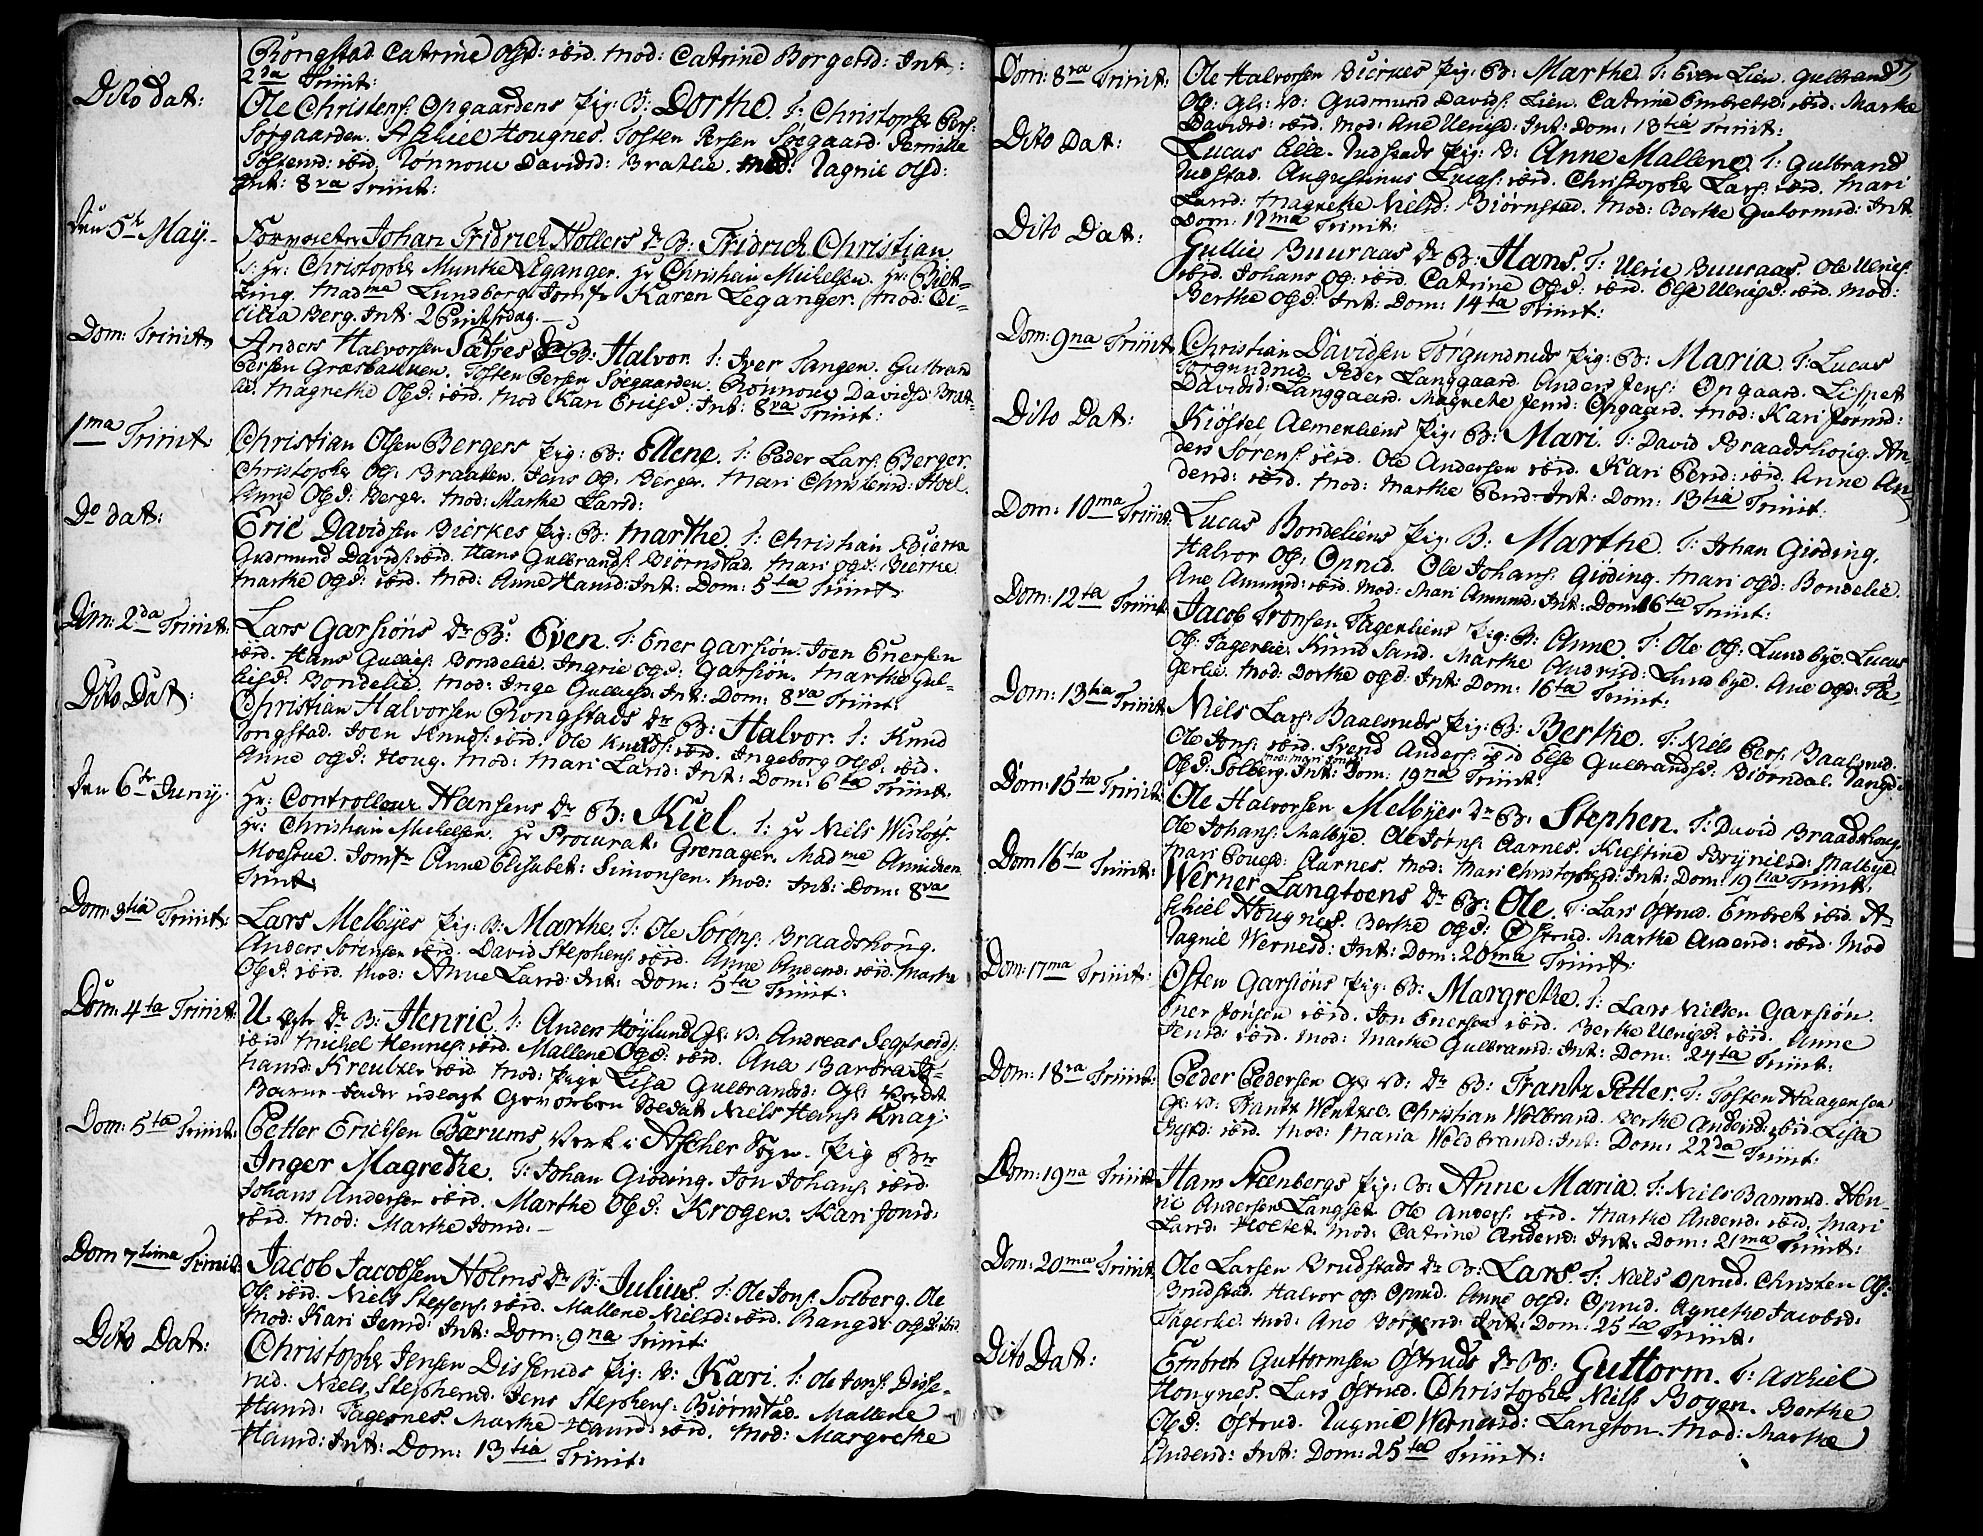 Rongstad Catrine Olsd: ibid. Mod: Catrine Borgersd: Int:
2da Trinit:
Dito Dat: Ole Christens: Opgaardens Pig: B: Dorthe. T: Christopher Pers:
Sorgaarden. Aschiel Hougnes. Tosten Persen Soegaard. Pernille
Tostensd: ibid. Rønnow Davidsd: Bratlie. Mod: Ragnil Olsd:
Int: 8va Trinit:
Den 5te May. Johan Fridrich Hollers Dr: B: Fridrich Christian
T: Hr: Christopher Munthe Leganger. Hr Christian Michelsen. Hr:
Madme Lundborg. Jomfr Karen Leganger. Mod: Ci-
cilia Berg. Int: 2 Pintsedag.
Dom: Trinit: Anders Halvorsen Sætres Dr: B: Halvor. T: Iver Tangen. Gulbrand
Persen Græsbakken. Tosten Persen Soegaarden. Rønnow Davidsd: Brat-
lie. Magrethe Olsd: ibid. Mod Kari Ericsd: Int: 8va Trinit:
1ma Trinit: Christian Olsen Bergers Pig: B: Ellene. T: Peder Lars: Berger.
Christopher Ols: Braaten. Jens Ols: Berger. Mari Christensd: Hoel.
Anne Olsd: Berger. Mod: Marthe Larsd:
Do dat: Eric Davidsen Bierkes Pig: B: Marthe. T: Christian Bierke
Gudmund Davids: ibid. Hans Gulbrands: Biørnstad. Mari Olsd: Bierke
Marthe Olsd: ibid. Mod: Anne Hansd: Int: Dom: 5ta Trinit:
Dom: 2da Trinit: Lars Garsiøns Dr B: Even. T: Ener Garsiøn. Joen Enersen
ibid. Hans Gullics: Bondelie. Ingrie Olsd: Garsiøn. Marthe Gul-
licsd: Bondelie. Mod: Inge Gullicsd: Int: Dom: 8va Trinit:
Dito Dat: Christian Halvorsen Rongstads Dr B: Halvor. T: Knud
Rongstad. Joen Knuds: ibid. Ole Knuds: ibid. Ingeborg Olsd: ibid.
Anne Olsd: Houg. Mod: Mari Larsd: Int: Dom: 6ta Trinit:
Den 6te Juny. Hr: Controlleur Hansens Dr B: Kiel. T: Hr Niels Wisløgs.
Hr: Christian Michelsen. Hr Procurat: Grenager. Madme Annichen
Moestue. Jomfr Anne Elisabet: Simonsen. Mod: Int: Dom: 8va
Trinit:
Dom: 3tia Trinit: Lars Melbyes Pig: B: Marthe. T: Ole Sørens: Braadshoug.
Anders Sørensen ibid. David Stephens: ibid. Anne Andersd: ibid. Marthe
Olsd: ibid. Mod: Anne Larsd: Int: Dom: 5ta Trinit:
Dom: 4ta Trinit: U ægte Dr B: Henric. T: Anders Høylund Gl: V: Andreas Segfreids:
ibid Michel Hennes: ibid. Mallene Olsd: ibid. Ana Barbra Jo-
hansd: Kreutzer ibid. Mod: Pige Lisa Gulbrandsd: Gl: Verdet
Barne Fader udlagt Gevorben Soldat Niels Hans: Knag:
Dom: 5ta Trinit: Petter Ericksen Bærums Verk i Ascher Sogn. Pig Br:
Inger Magrethe. T: Johan Giøding. Jon Johans: ibid.
Johans Andersen ibid. Marthe Olsd: Krogen. Kari Jonsd:
ibid. Mod: Marthe Jonsd:
Dom 7tima Trinit: Jacob Jacobsen Holms Dr B: Julius. T: Ole Jons: Solberg. Ole
Ols: ibid. Niels Steffens: ibid. Mallene Nielsd: ibid. Rangdi Olsd: ibid.
Mod: Kari Jensd: Int: Dom: 9na Trinit:
Dito Dat: Christopher Jensen Disseruds Pig: B: Kari. T: Ole Jons: Disse-
rud. Niels Stephensd. Jens Stephens: Biørnstad. Mallene
Hansd: Fagernes. Marthe Hansd: ibid. Mod: Margrethe
Hansd: Int: Dom: 13tia Trinit:
Dom: 8va Trinit: Ole Halvorsen Bierkes Pig: B: Marthe T: Even Lien. Gulbrand
Ols: Gl: V: Gudmund Davids: Lien. Catrine Embretsd: ibid: Marthe
Davidsd: ibid. Mod: Ane Ulricsd: Int: Dom: 13tia Trinit:
Dito Dat: Lucas Eller Rudstads Pig: B: Anne Mallene. T: Gulbrand
Rudstad. Augustinus Lucas: ibid. Christopher Lars: ibid. Mari
Larsd: Magrethe Nielsd: Biørnstad. Mod: Berthe Guttormsd: Int:
Dom: 17ma Trinit:
Dito Dat: Gullic Buuraas Dr B: Hans. T: Ulric Buuraas. Ole Ulrics:
ibid. Johans Ols: ibid. Catrine Olsd: ibid. Else Ulricsd: ibid. Mod:
Berthe Olsd: Int: Dom: 14ta Trinit:
Dom: 9na Trinit: Christian Davidsen Torgundruds Pig: B: Maria. T: Lucas
Torgundrud. Peder Langgaard. Anders Jens: Opgaard. Lispet
Davidsd: Langgaard. Magrethe Jensd: Opgaard. Mod: Kari Jonsd:
Dito Dat: Kiøstel Almerliens Pig: B: Mari. T: David Braadshoug. An-
ders Sørens: ibid. Ole Andersen ibid. Kari Persd: ibid. Anne An-
dersd: ibid. Mod: Marthe Persd Int: Dom: 13tia Trinit:
Dom: 10ma Trinit: Lucas Bondeliens Pig: B: Marthe. T: Johan Giøding.
Halvor Ols: Oprud. Ole Johans: Giøding. Mari Olsd: Bondelie.
Ane Amundsd: ibid. Mod: Mari Amundsd: Int: Dom: 16ta Trinit:
Dom: 12ta Trinit: Jacob Tronsen Fagerliens Pig: B: Anne. T: Ole Ols: Lundbye. Lucas
Ols: Fagerlie. Knud Sand. Marthe Andrisd: Lundbye. Ane Olsd: Fa-
gerlie. Mod: Dorthe Olsd: Int: Dom: 16ta Trinit:
Dom: 13tia Trinit: Niels Lars: Baalsruds Pig: B: Berthe. T: Niels Pers: Baalsrud.
Ole Jons: ibid. Svend Anders: ibid Else Gulbrandsd: Biørndal. Rangdi
Olsd: Solberg. Mod: Mari Jonsd: Int: Dom: 19na Trinit:
Dom: 15ta Trinit: Ole Halvorsen Melbyes Dr B: Stephen. T: David Braadshoug.
Ole Johans: Malbye. Ole Jørns: Aarnes. Kiestine Brynilsd: Malbye.
Mari Povelsd: Aarnes. Mod: Mari Christophersd: Int: Dom: 19na Trinit:
Dom 16ta Trinit: Werner Langtoens Dr B: Ole. T: Lars Østrud. Embret ibid. A-
schiel Hougnes. Berthe Olsd: Østrud. Marthe Andersd: ibid. Mod
Ragnil Wernersd: Int: Dom: 20ma Trinit:
Dom: 17ma Trinit: Østen Garsiøns Pig: B: Margrethe. T: Lars Nielsen Garsiøn.
Ener Jonsen ibid. Jon Enersen ibid. Berthe Ulricsd: ibid. Anne
Jensd: ibid. Mod: Marthe Gulbransd: Int: Dom: 24ta Trinit:
Dom: 18va Trinit: Peder Pedersen Gl: V: Dr B: Frantz Petter. T: Tosten Haagensen
Gl: V: Frantz Wentzel. Christian Wolbrand. Berthe Andersd: ibid. Lisa
ibid. Mod: Maria Woldbransd: Int: Dom: 22da Trinit:
Dom: 19na Trinit: Hans Steenbergs Pig: B: Anne Maria. T: Niels Bamrud. Hen-
ric Andersen Langset. Ole Anders: ibid. Marthe Andersd: ibid. Mari
Larsd: Holtet. Mod: Catrine Andersd: Int: Dom: 21ma Trinit:
Dom: 20ma Trinit: Ole Larsen Brudstads Dr B: Lars. T: Niels Oprud. Christen Ols:
Brudstad. Halvor Ols: Oprud. Anne Olsd: Oprud. Agnethe Jacobsd:
Mod: Ane Borgersd: Int: Dom: 25ta Trinit:
Dito Dat: Embret Guttormsen Østruds Dr B: Guttorm. T: Aschiel
Hougnes. Lars Østrud. Christopher Niels Bogen. Berthe
Olsd: Østrud. Ragnil Wernersd: Langton. Mod: Marthe
Andersd: Int: Dom: 25ta Trinit: